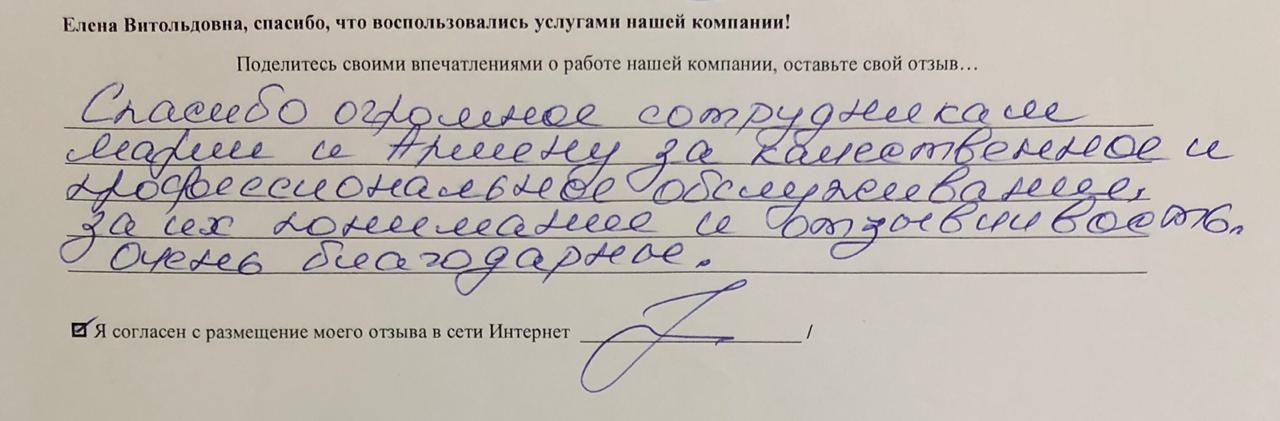 Елена Витольдовна, спасибо, что воспользовались услугами нашей компании!
Поделитесь своими впечатлениями о работе нашей компании, оставьте свой отзыв…
Спасибо огромное сотрудникам
Марии и Армену за качественное и
профессиональное обслуживание,
за их понимание и отзывчивость.
Очень благодарное.
Я согласен с размещение моего отзыва в сети Интернет /